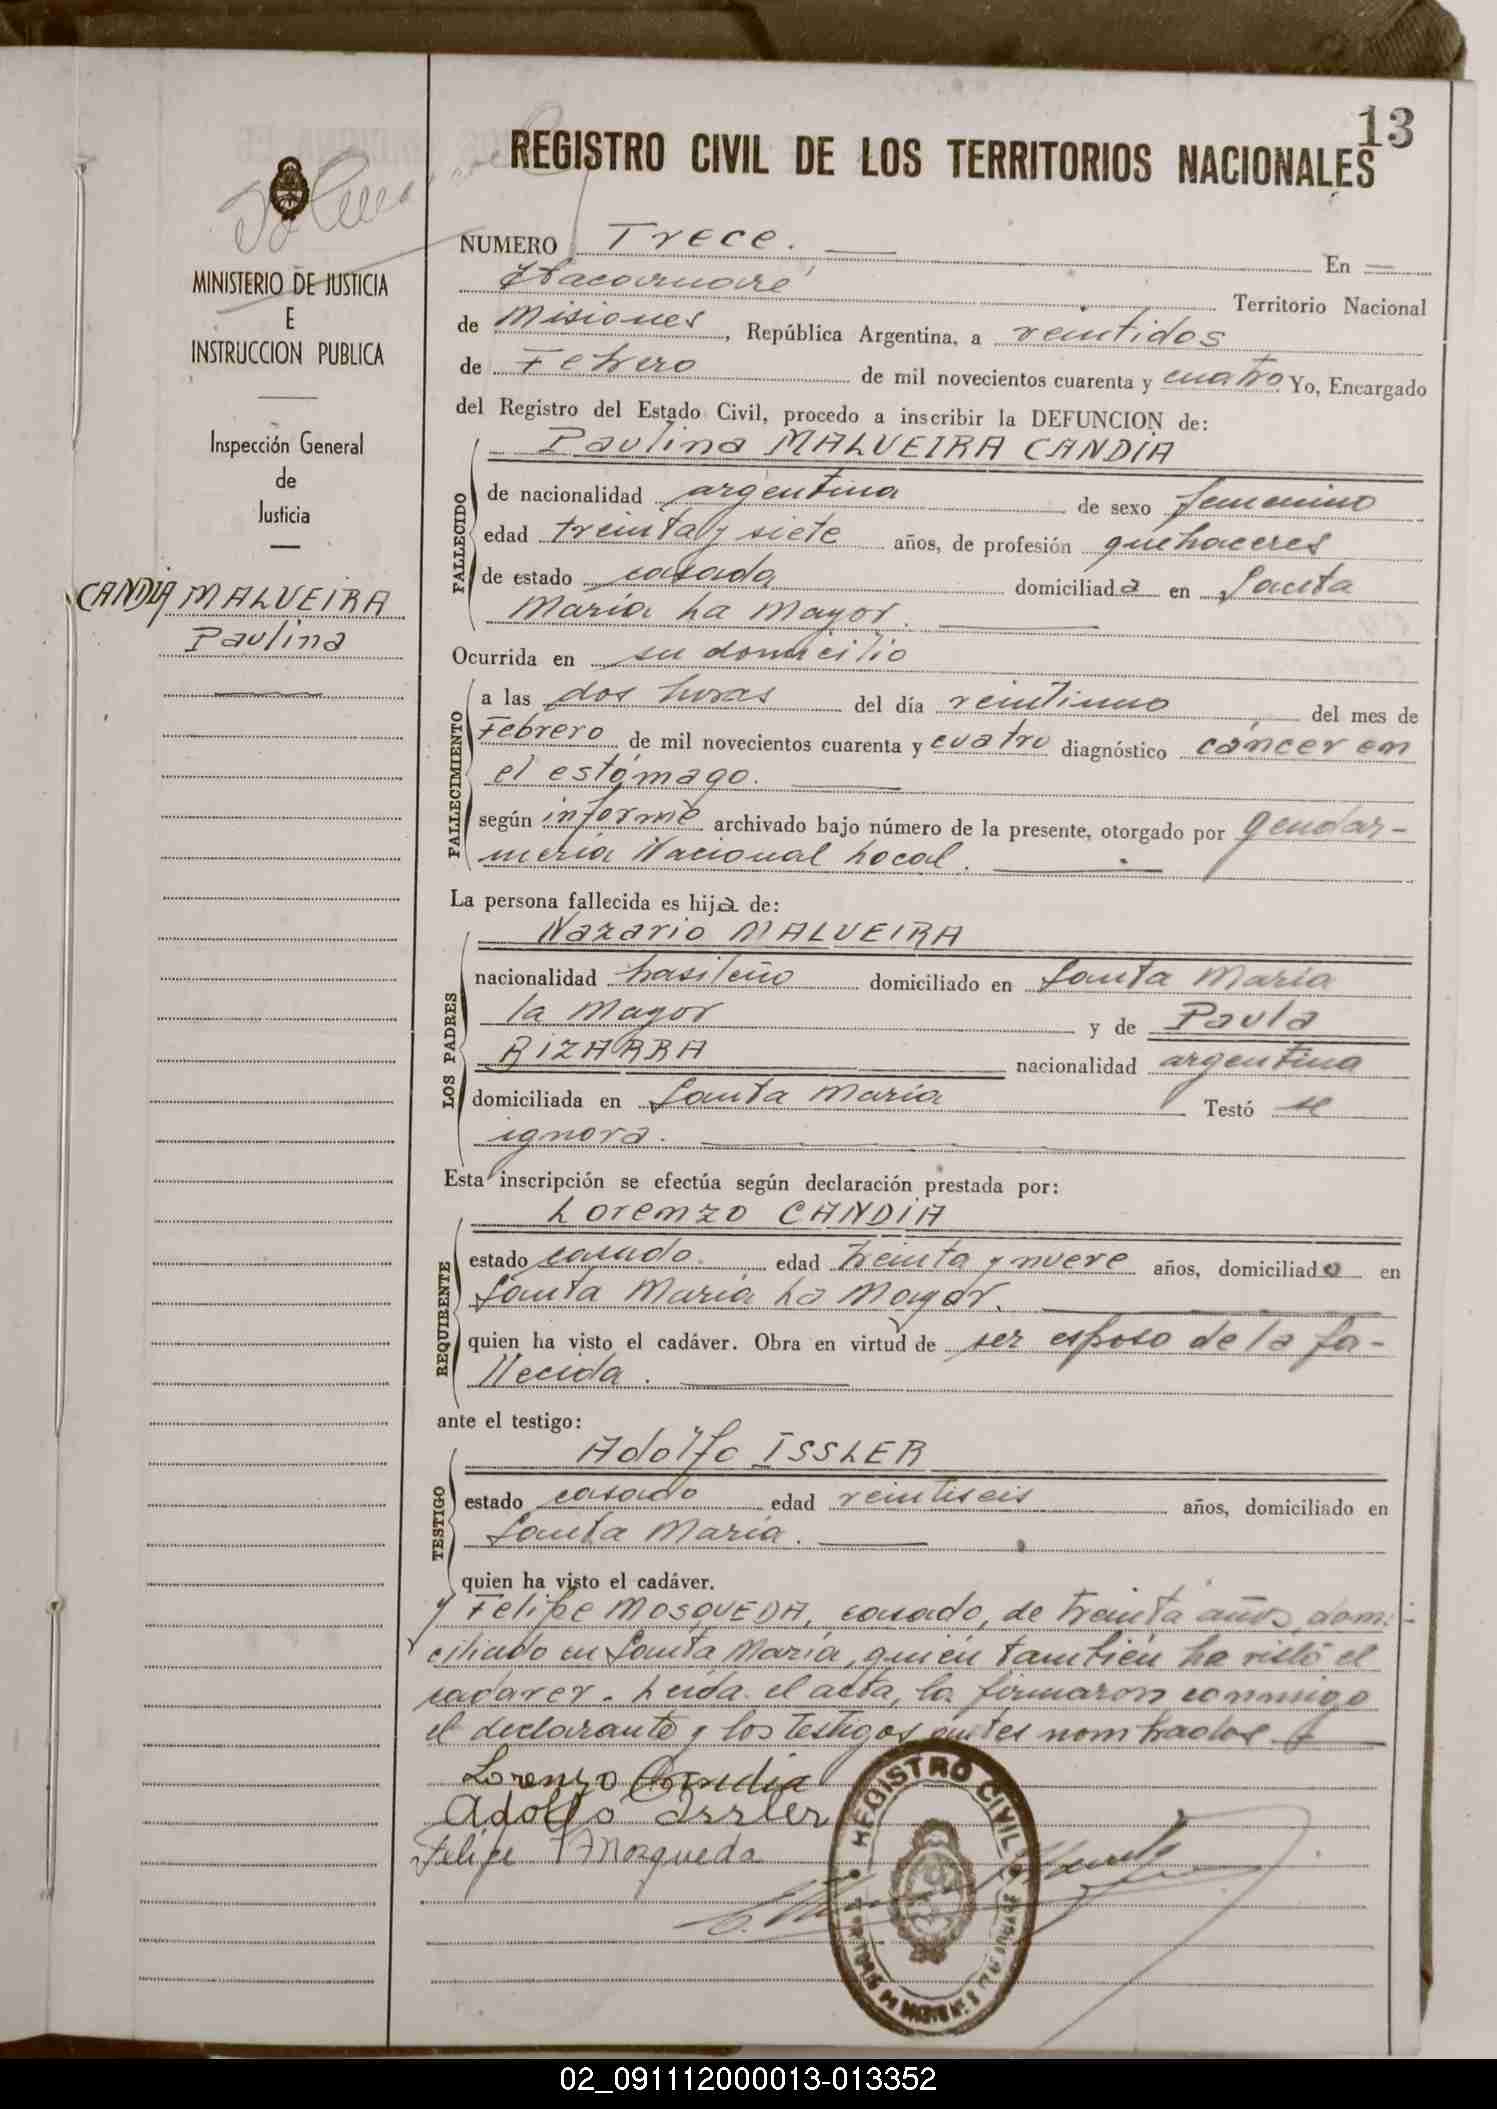 13
REGISTRO CIVIL DE LOS TERRITORIOS NACIONALES
MINISTERIO DE JUSTICIA
E
INSTRUCCION PUBLICA
Inspección General
de
Justicia
CANDIA MALVEIRA
Paulina
NUMERO Trece.
En
Itacaruaré Territorio Nacional
de Misiones, República Argentina, a veintidos
de Febrero de mil novecientos cuarenta y cuatro Yo, Encargado
del Registro del Estado Civil, procedo a inscribir la DEFUNCION de:
Paulina MALVEIRA CANDIA
FALLECIDO
de nacionalidad argentina de sexo femenino
edad treinta y siete años, de profesión quehaceres
de estado casada domiciliada en Santa
María La Mayor.
Ocurrida en su domicilio
FALLECIMIENTO
a las dos horas del día veintiuno del mes de
Febrero de mil novecientos cuarenta y cuatro diagnóstico cáncer en
el estómago.
según informe archivado bajo número de la presente, otorgado por Gendar-
mería Nacional Local.
La persona fallecida es hija de:
Nazario MALVEIRA
LOS PADRES
nacionalidad brasileño domiciliado en Santa María
la Mayor y de Paula
BIZARRA nacionalidad argentina
domiciliada en Santa María Testó se
ignora.
Esta inscripción se efectúa según declaración prestada por:
Lorenzo CANDIA
REQUIRENTE
estado casado. edad treinta y nueve años, domiciliado en
Santa María La Mayor.
quien ha visto el cadáver. Obra en virtud de ser esposo de la fa-
llecida.
ante el testigo:
Adolfo ISSLER
TESTIGO
estado casado edad veintiseis años, domiciliado en
Santa María.
quien ha visto el cadáver.
y Felipe MOSQUEDA, casado, de treinta años, domi-
ciliado en Santa María, quién también ha visto el
cadaver. Leída el acta, la firmaron conmigo
el declarante y los testigos antes nombrados
Lorenzo Candia
Adolfo Issler
Felipe Mosqueda
REGISTRO CIVIL
02_091112000013-013352